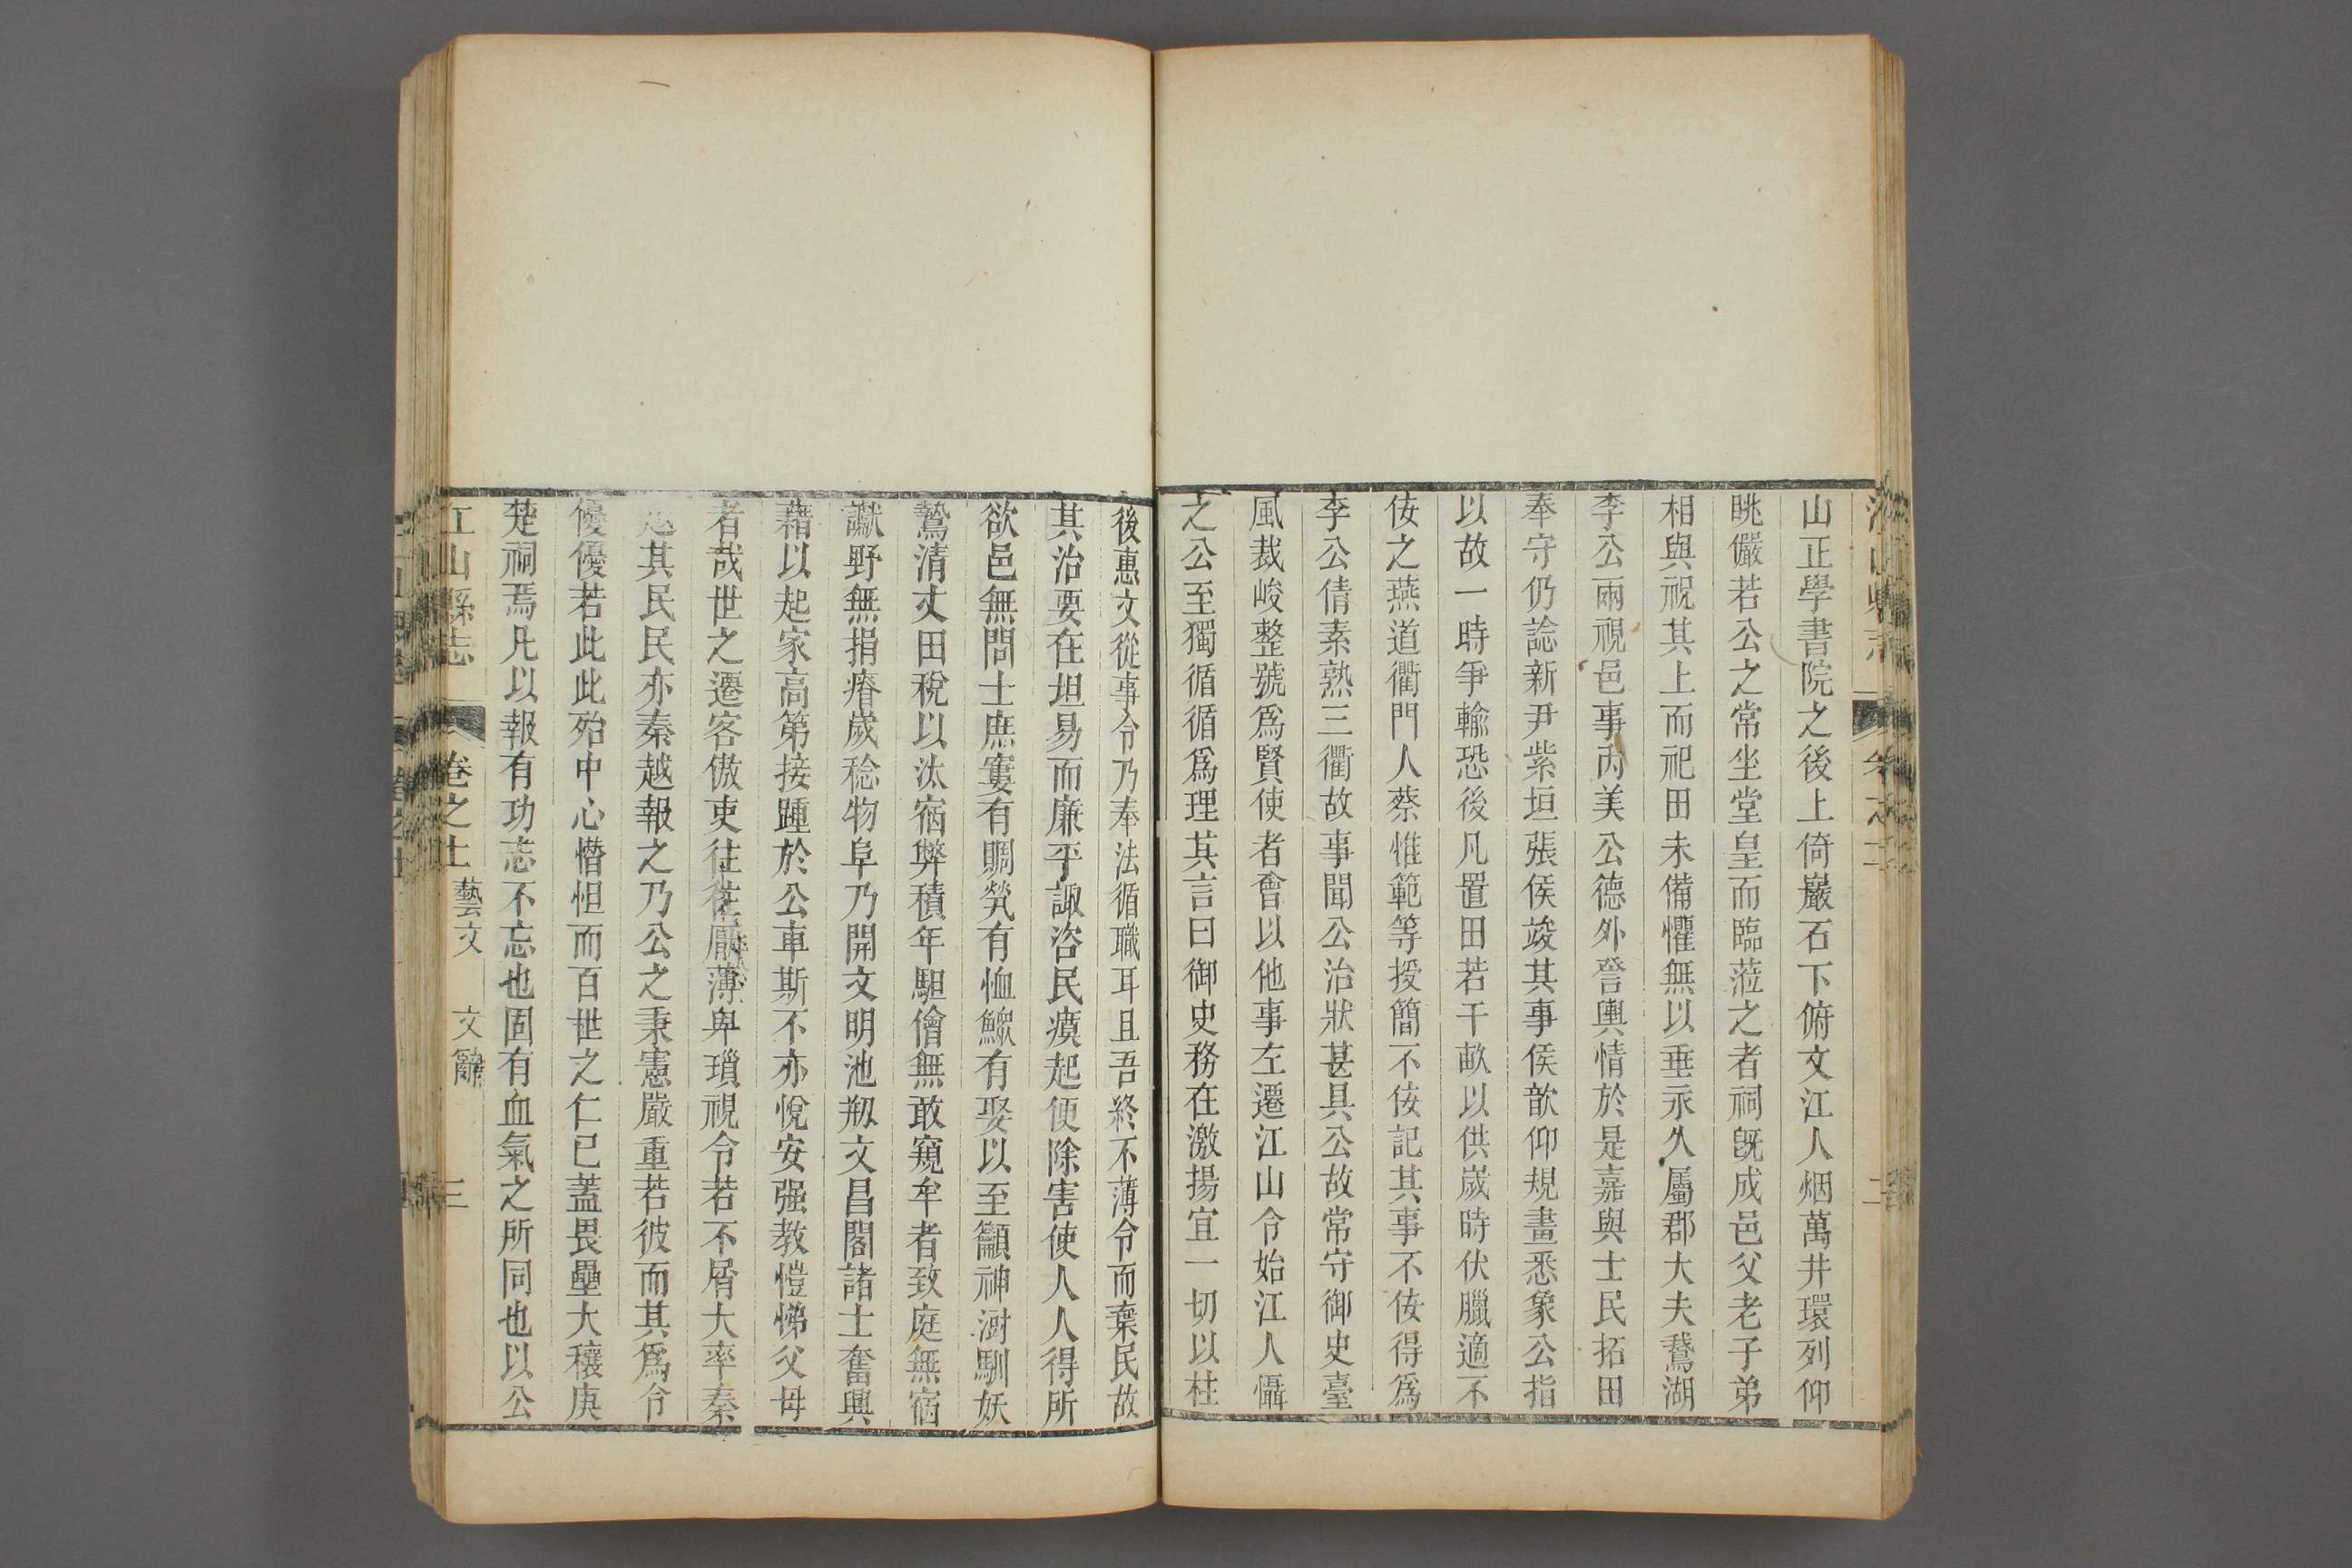 山正學書院之後上倚巖石下俯文江人烟萬井環列仰
眺儼若公之常坐堂皇而臨蒞之者祠旣成邑父老子弟
相與祝其上而祀田未備懼無以垂永久屬郡大夫鵞湖
李公兩視邑事丙美公德外詧輿情於是嘉與士民拓田
奉守仍諗新尹紫垣張侯竣其事侯歆仰規畫悉象公指
以故一時爭輸恐後凡置田若干畝以供歲時伏臘適不
佞之燕道衢門人蔡惟範等授簡不佞記其事不佞得爲
李公倩素熟三衢故事聞公治狀甚具公故常守御史臺
風裁峻整號爲賢使者會以他事左遷江山令始江人懾
之公至獨循循爲理其言曰御史務在激揚宜一切以柱
後惠文從事令乃奉法循職耳且吾終不薄令而棄民故
其治要在坦易而廉乎諏咨民瘼起便除害使人人得所
欲邑無問士庶窶有賙煢有恤鰥有娶以至籲神澍馴妖
鷙清丈田稅以汰宿弊積年駔儈無敢窺牟者致庭無宿
讞野無捐瘠歲稔物阜乃開文明池剏文昌閣諸士奮興
藉以起家高第接踵於公車斯不亦悅安强教愷悌父母
者哉世之遷客傲吏往往厭薄卑瑣視令若不屑大率秦
越其民民亦秦越報之乃公之秉憲嚴重若彼而其爲令
優優若此此殆中心憯怛而百世之仁已蓋畏壘大穰庚
楚祠焉凡以報有功志不忘也固有血氣之所同也以公
江山縣志 卷之十 藝文 文辭 三